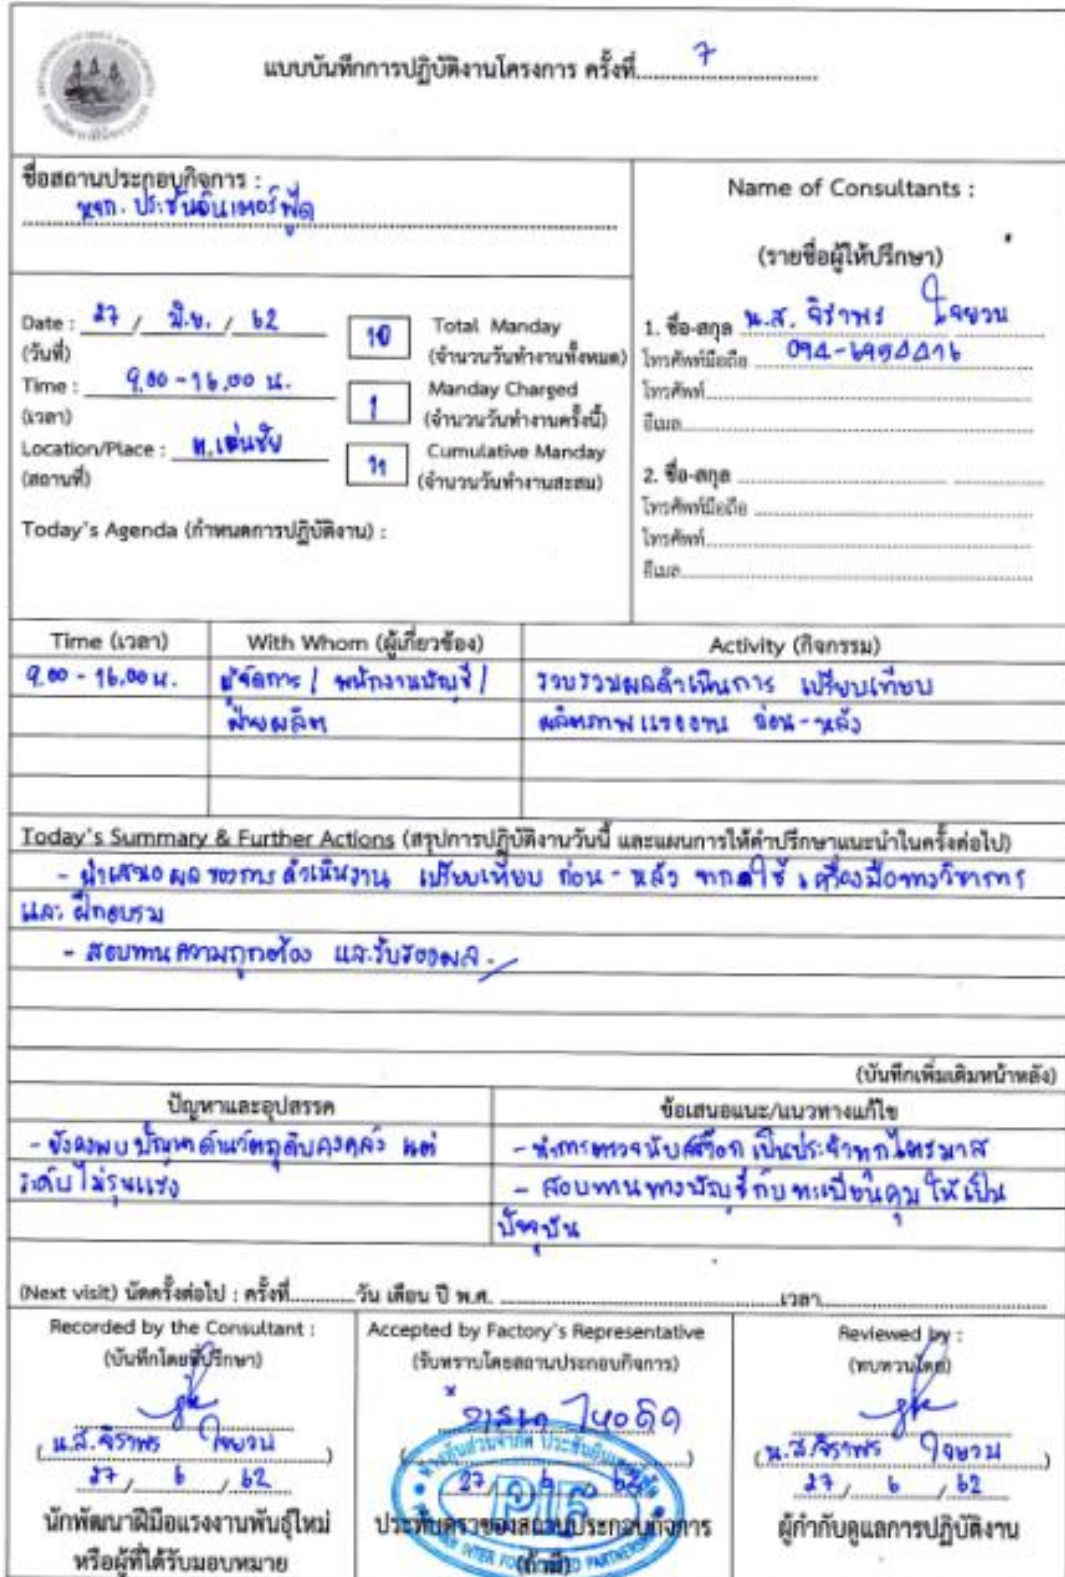 แบบบันทึกการปฏิบัติงานโครงการ ครั้งที่ 7
ชื่อสถานประกอบกิจการ :
หจก. ประชันอินเตอร์ฟู้ด
Name of Consultants :
(รายชื่อผู้ให้ปรึกษา)
Date : 27 / มิ.ย. / 62
(วันที่)
Time : 9.00 - 16.00 น.
(เวลา)
Location/Place : ต.เด่นชัย
(สถานที่)
10 Total Manday
(จำนวนวันทำงานทั้งหมด)
1 Manday Charged
(จำนวนวันทำงานครั้งนี้)
11 Cumulative Manday
(จำนวนวันทำงานสะสม)
Today's Agenda (กำหนดการปฏิบัติงาน) :
1. ชื่อ-สกุล น.ส. จิราพร ใจยวน
โทรศัพท์มือถือ
โทรศัพท์
อีเมล
2. ชื่อ-สกุล
โทรศัพท์มือถือ
โทรศัพท์
อีเมล
Time (เวลา) With Whom (ผู้เกี่ยวข้อง) Activity (กิจกรรม)
9.00 - 16.00 น. ผู้จัดการ / พนักงานบัญชี / รวบรวมผลดำเนินการ เปรียบเทียบ
ฝ่ายผลิต ผลิตภาพแรงงาน ก่อน - หลัง
Today's Summary & Further Actions (สรุปการปฏิบัติงานวันนี้ และแผนการให้คำปรึกษาแนะนำในครั้งต่อไป)
- นำเสนอผลของการดำเนินงาน เปรียบเทียบ ก่อน - หลัง ใช้เครื่องมือทางวิชาการ
และ ฝึกอบรม
- สอบทานความถูกต้อง และรับรองผล.
(บันทึกเพิ่มเติมหน้าหลัง)
ปัญหาและอุปสรรค ข้อเสนอแนะ/แนวทางแก้ไข
- ยังคงพบปัญหาด้านวัตถุดิบคงคลัง แต่
ระดับไม่รุนแรง
- ทำการตรวจนับสต๊อก เป็นประจำทุกไตรมาส
- สอบทานทางบัญชีกับทะเบียนคุม ให้เป็น
ปัจจุบัน
(Next visit) นัดครั้งต่อไป : ครั้งที่ วัน เดือน ปี พ.ศ. เวลา
Recorded by the Consultant :
(บันทึกโดยที่ปรึกษา)
(น.ส.จิราพร ใจยวน)
27 / 6 / 62
นักพัฒนาฝีมือแรงงานพันธุ์ใหม่
หรือผู้ที่ได้รับมอบหมาย
Accepted by Factory's Representative
(รับทราบโดยสถานประกอบกิจการ)
27 / 6 / 62
PIF
ประทับตราของสถานประกอบกิจการ
(ถ้ามี)
Reviewed by :
(ทบทวนโดย)
(น.ส.จิราพร ใจยวน)
27 / 6 / 62
ผู้กำกับดูแลการปฏิบัติงาน